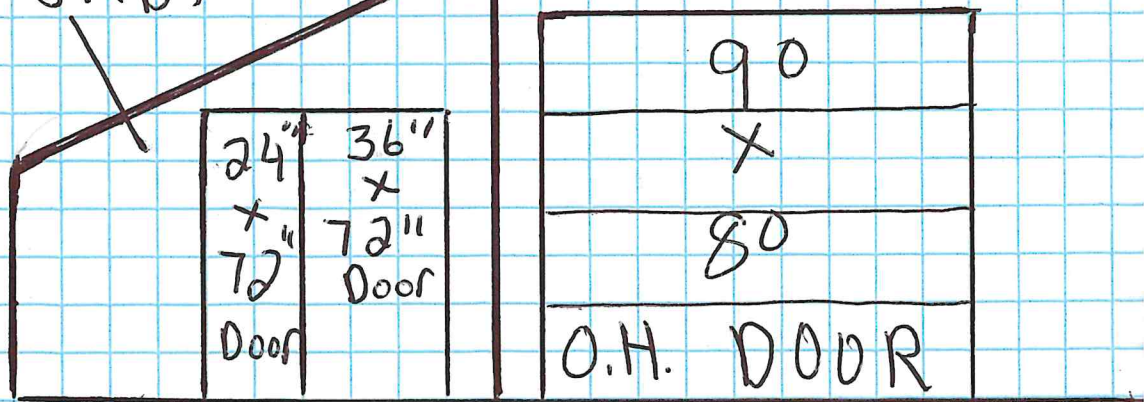 24"
x
72"
Door
36"
x
72"
Door
90
X
80
O.H. DOOR